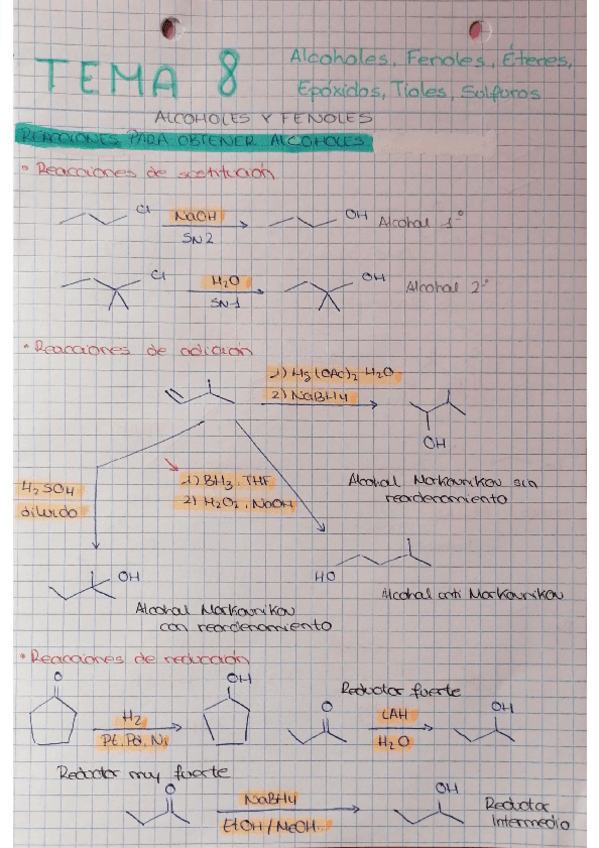 TEMA 8
Alcoholes, Fenoles, Éteres,
Epóxidos, Tioles, Sulfuros
ALCOHOLES Y FENOLES
REACCIONES PARA OBTENER ALCOHOLES
• Reacciones de sustitución
Cl NaOH OH Alcohol 1º
SN2
Cl H2O OH Alcohol 2º
SN1
• Reacciones de adición
1) Hg(OAc)2 H2O
2) NaBH4
OH
H2SO4
diluido
1) BH3, THF
2) H2O2, NaOH
Alcohol Markovnikov sin
reordenamiento
OH
HO
Alcohol anti Markovnikov
Alcohol Markovnikov
con reordenamiento
• Reacciones de reducción
O H2 OH
Pt, Pd, Ni
Reductor fuerte
O LAH OH
H2O
Reductor muy fuerte
O NaBH4 OH
EtOH/MeOH
Reductor
Intermedio